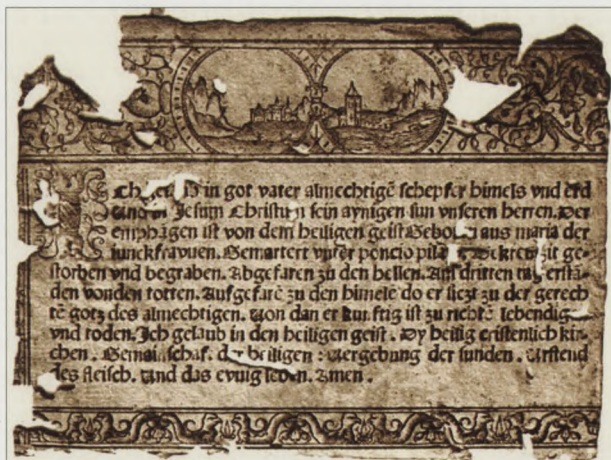 Ich gelaub in got vater almechtigẽ schepfer himels vnd erd
Vnd in Jesum Christum sein aynigen sun vnseren herren. Der
emphãgen ist von dem heiligen geist Geborn aus maria der
iunckfrawen. Gemartert vnter poncio pilato Gekreutzit ge-
storben vnd begraben. Abgefaren zu den hellen. Am dritten tag erstã-
den von den totten. Aufgefarẽ zu den himelẽ do er siczt zu der gerech
tẽ gotz des almechtigen. Von dan er kunftig ist zu richtẽ lebendig
vnd toden. Ich gelaub in den heiligen geist. Dy heilig cristenlich kir-
chen. Gemainschaf. der heiligen: Vergebung der sunden. Vrstend
des fleisch. Vnd das ewig leben. Amen.